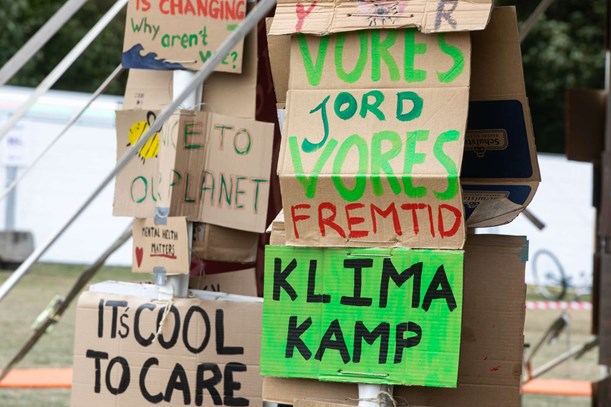 IS CHANGING
Why aren't
CE TO
OU PLANET
MENTAL HELTH
MATTERS
IT'S COOL
TO CARE
VORES
JORD
VORES
FREMTID
KLIMA
KAMP